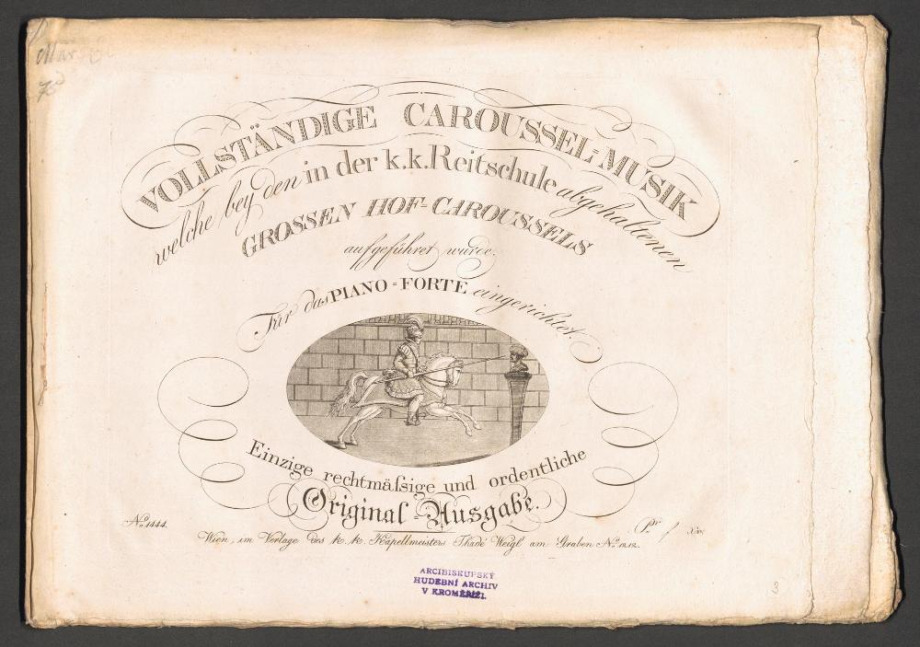 VOLLSTÄNDIGE CAROUSSEL=MUSIK
welche bey den in der k.k. Reitschule abgehaltenen
GROSSEN HOF=CAROUSSELS
aufgeführet wurde.
Für das PIANO=FORTE eingerichtet.
Einzige rechtmäſsige und ordentliche
Original=Ausgabe.
No. 1444.
Pr. f Xr.
Wien, im Verlage des k. k. Kapellmeisters Thadé Weigl am Graben No. 1212.
ARCIBISKUPSKÝ
HUDEBNÍ ARCHIV
V KROMĚŘÍŽI.
3